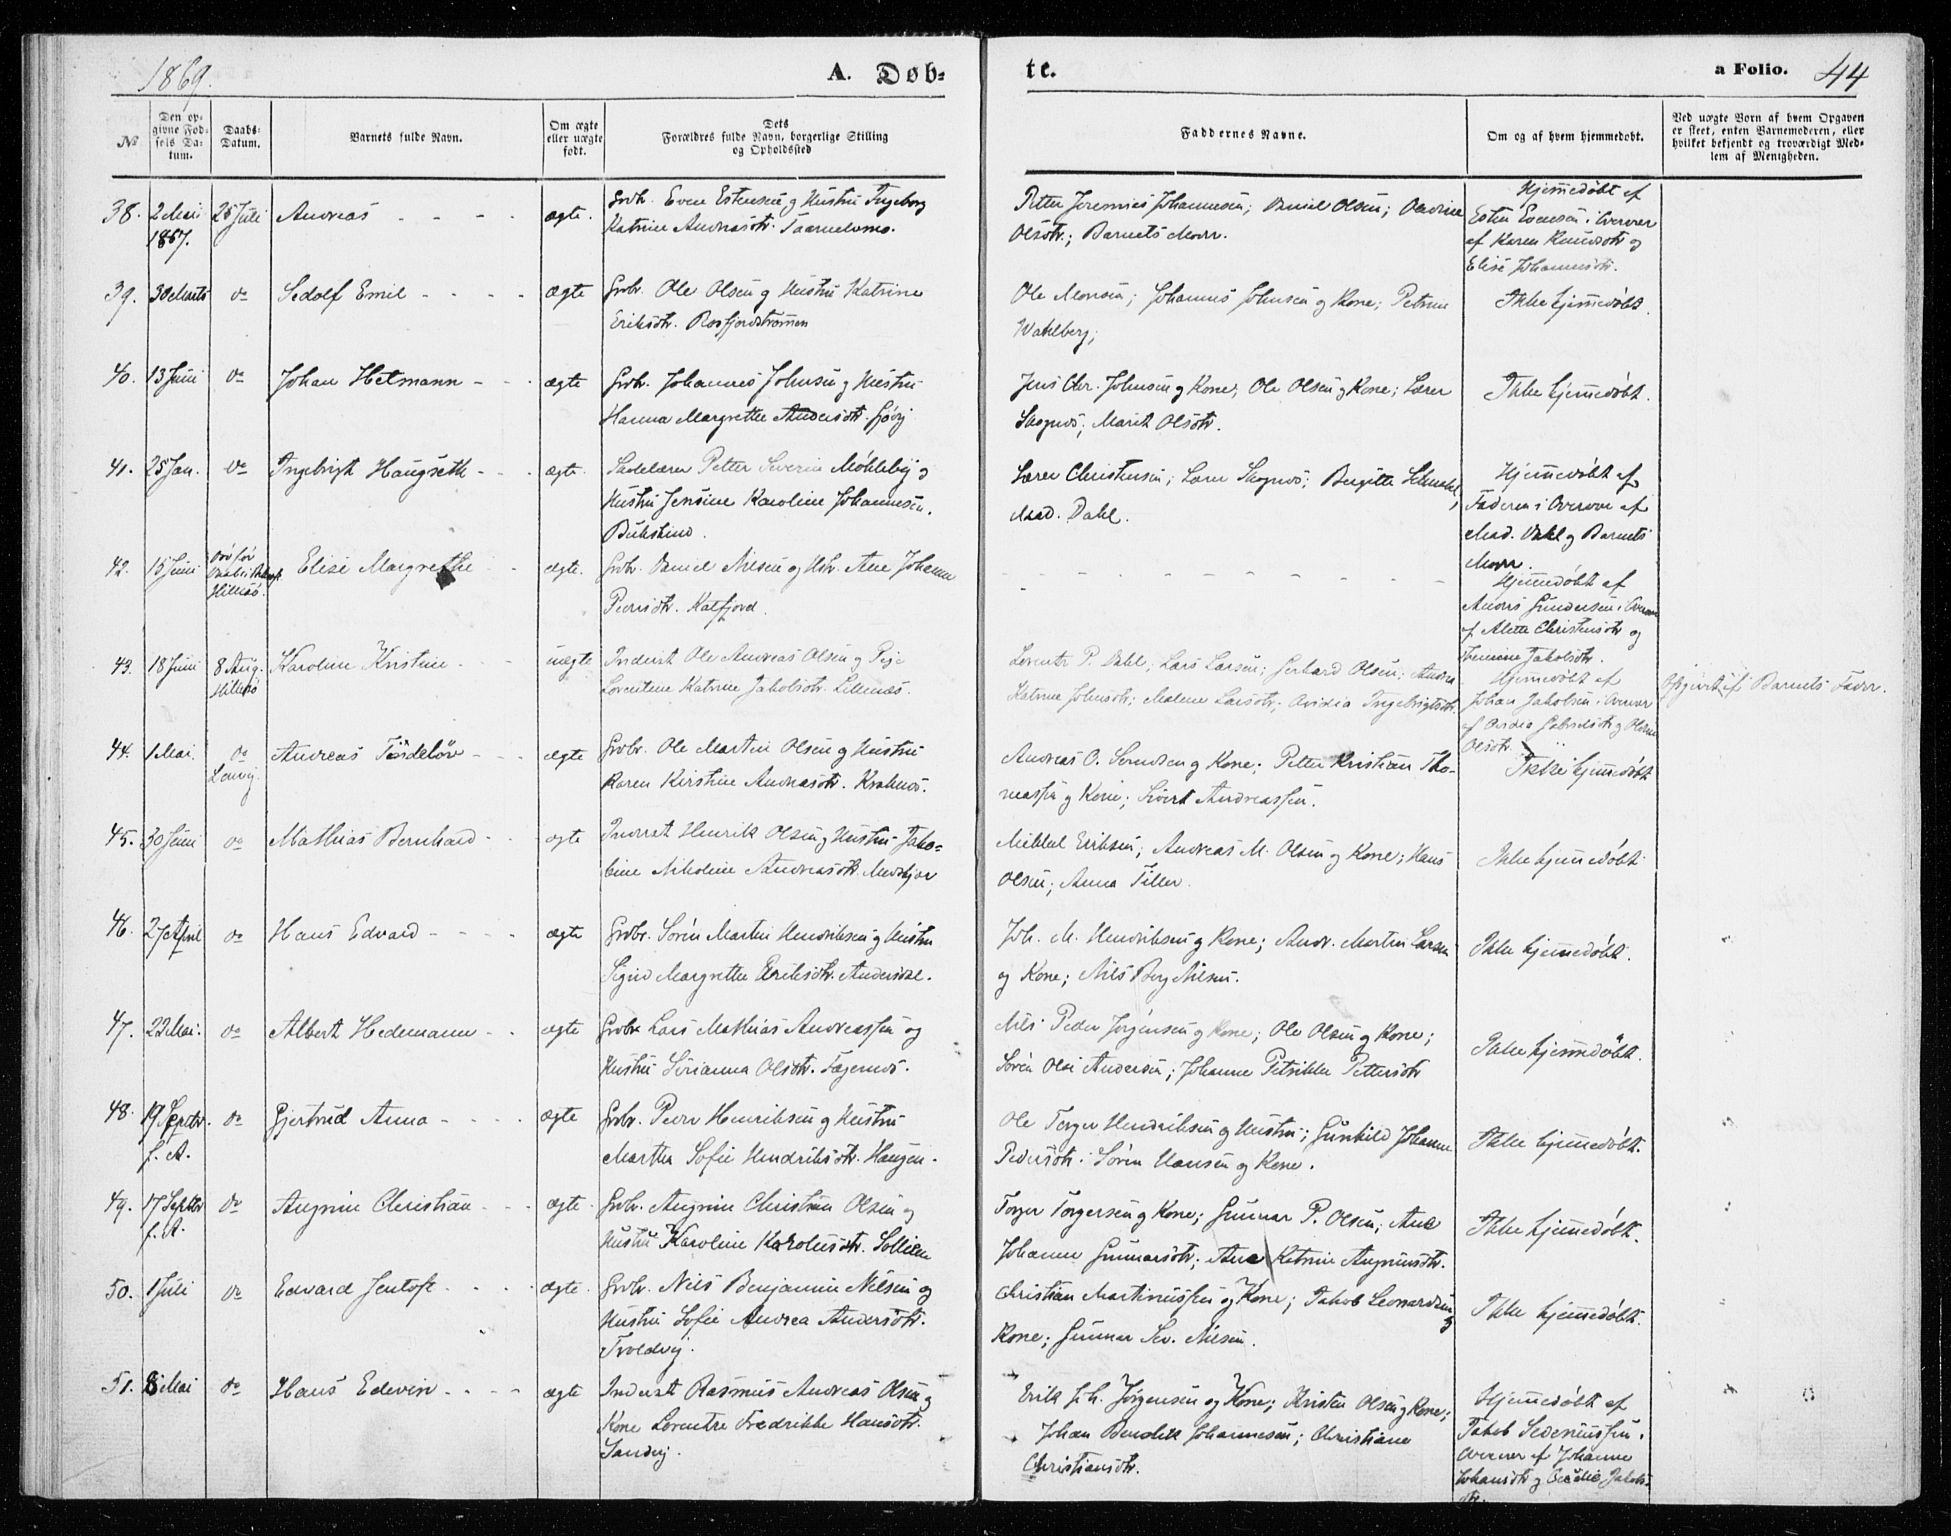 1869.
A. Døb-
te.
a Folio. 44
No
Den op-
givne Fød-
sels Da-
tum.
Daabs-
Datum.
Barnets fulde Navn.
Om ægte
eller uægte
født.
Dets
Forældres fulde Navn, borgerlige Stilling
og Opholdssted
Faddernes Navne.
Om og af hvem hjemmedøbt.
Ved uægte Børn af hvem Opgaven
er skeet, enten Barnemoderen, eller
hvilket bekjendt og troværdigt Med-
lem af Menigheden.
38. 2 Mai 25 Juli Andreas ægte. Grbr. Even Estensen og Hustru Ingeborg
1867. Katrine Andreasdtr.
Petter Jeremias Johannesen; Daniel Olsen;
Olsdtr.; Barnets Moder.
Hjemmedøbt af
Esten Evensen i Overvær
af Karen Knudsdtr og
Elise Johannesdtr.
39. 30 Marts do Sedolf Emil ægte Grbr. Ole Olsen og Hustru Katrine
Eriksdtr. Rosfjordstrømmen
Ole Monsen; Johannes Johnsen og Kone; Petrine
Wahlberg;
Ikke hjemmedøbt.
40. 13 Juni do Johan Hetmann ægte Grbr. Johannes Johnsen og Hustru
Hanna Margrethe Andersdtr.
Jens Chr. Johnsen og Kone; Ole Olsen og Kone; Lærer
Marit Olsdtr.
Ikke hjemmedøbt.
41. 25 Jan. do Ingebrigt Haugseth ægte. Petter Severin
Hustru Jensine Karoline Johannesen.
Bukskind.
Lærer Christensen; Lærer Birgitte
Mad. Dahl.
Hjemmedøbt af
Faderen i Overvær af
Mad. Dahl og Barnets
Moder.
42. 15 Juni Død før
Hillesø.
Elise Margrethe ægte. Grbr. Daniel Nilsen og Hstr. Ane Johanna
Pedersdtr. Katfjord.
Hjemmedøbt af
Anders Gundersen i Overvær
af Alette Christensdtr og
Jakobsdtr.
43. 18 Juni 8 Aug. Karoline Kristine uægte Inderst Ole Andreas Olsen og Pige
Hillesø Lorentine Katrine Jakobsdtr. Lillenæs.
Lorentz P. Dahl; Lars Larsen; Gerhard Olsen; Andrea
Katrine Johnsdtr; Malene Larsdtr; Ovidia Ingebrigtsdtr.
Hjemmedøbt af
Johan Jakobsen i Overvær
af Ovidia
Olsdtr.
Opgivet af Barnets Fader.
44. 1 Mai. do Andreas ægte Grbr. Ole Martin Olsen og Hustru
Lenvig. Karen Kirstine Andreasdtr.
Andreas O. og Kone; Petter Kristian Tho-
massen og Kone; Sivert Andreassen.
Ikke hjemmedøbt
45. 30 Juni do Mathias Bernhard ægte Inderst Henrik Olsen og Hustru Jako-
bine Nikoline Andreasdtr.
Mikkel Eriksen; Andreas M. Olsen og Kone; Hans
Olsen; Anna Tiller.
Ikke hjemmedøbt
46. 27 April do Hans Edvard ægte Grbr. Sørén Martin Hendriksen og Hustru
Sigrid Margrethe Eriksdtr.
Joh. M. Hendriksen og Kone; Andr. Martin Larsen
og Kone; Nils Berg Nilsen.
Ikke hjemmedøbt.
47. 22 Mai. do Albert Hedemann ægte Grbr. Lars Mathias Andreassen og
Hustru Sørianna Olsdtr. Fagernæs.
Nils Peder Jørgensen og Kone; Ole Olsen og Kone;
Sørén Olai Andersen; Johanna Petrikke Pettersdtr
Ikke hjemmedøbt.
48. 19 Septbr. do Gjertrud Anna ægte Grbr. Peder Henriksen og Hustru
f. A. Martha Sofie Hendriksdtr. Haugen.
Ole Torger Hendriksen og Hustru; Gunhild Johanna
Pedersdtr. Sörén Hansen og Kone.
Ikke hjemmedøbt.
49. 17 Septbr do Angrim Christian ægte. Grbr. Angrim Christian Olsen og
f. A. Hustru Karoline Karolusdtr. Sollien
Torger Torgersen og Kone; Gunnar P. Olsen; Ane
Johanna Gunnarsdtr; Ane Katrine Angrimsdtr.
Ikke hjemmedøbt.
50. 1 Juli do Edvard Jentoft ægte. Grbr. Nils Benjamin Nilsen og
Hustru Sofie Andrea Andersdtr.
Troldvig.
Christian Martinussen og Kone; Jakob Leonardsen og
Kone; Gunnar Sev. Nilsen.
Ikke hjemmedøbt.
51. 8 Mai do Hans Edevin ægte Inderst Rasmus Andreas Olsen og
Kone Lorentze Fredrikke Hansdtr.
Sandvig.
Erik Joh. Jörgensen og Kone; Kristen Olsen og Kone;
Johan Bendik Johannesen; Christiane
Christiansdtr.
Hjemmedøbt af
Jakob i
Overvær af Johanna
Johansdtr og Jakobs-
dtr.